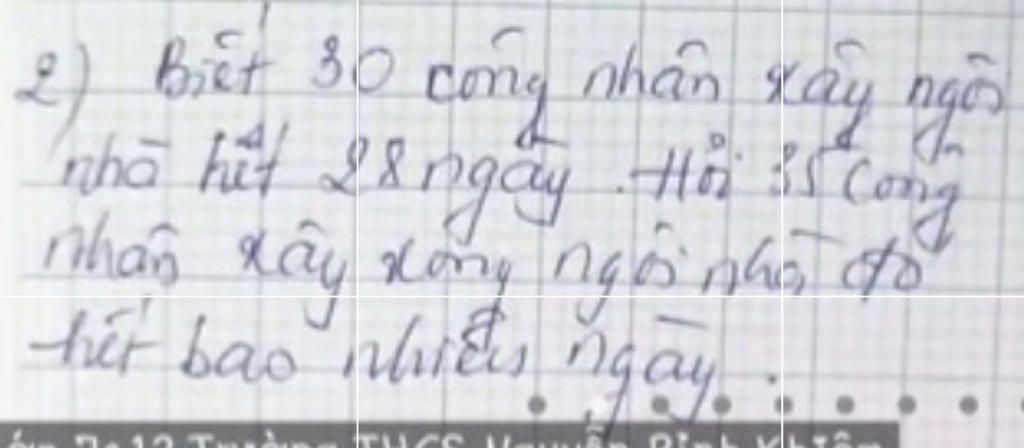 2) Biết 30 công nhân xây ngôi
nhà hết 28 ngày. Hỏi 35 công
nhân xây xong ngôi nhà đó
hết bao nhiêu ngày.
Trường THCS Nguyễn Bỉnh Khiêm